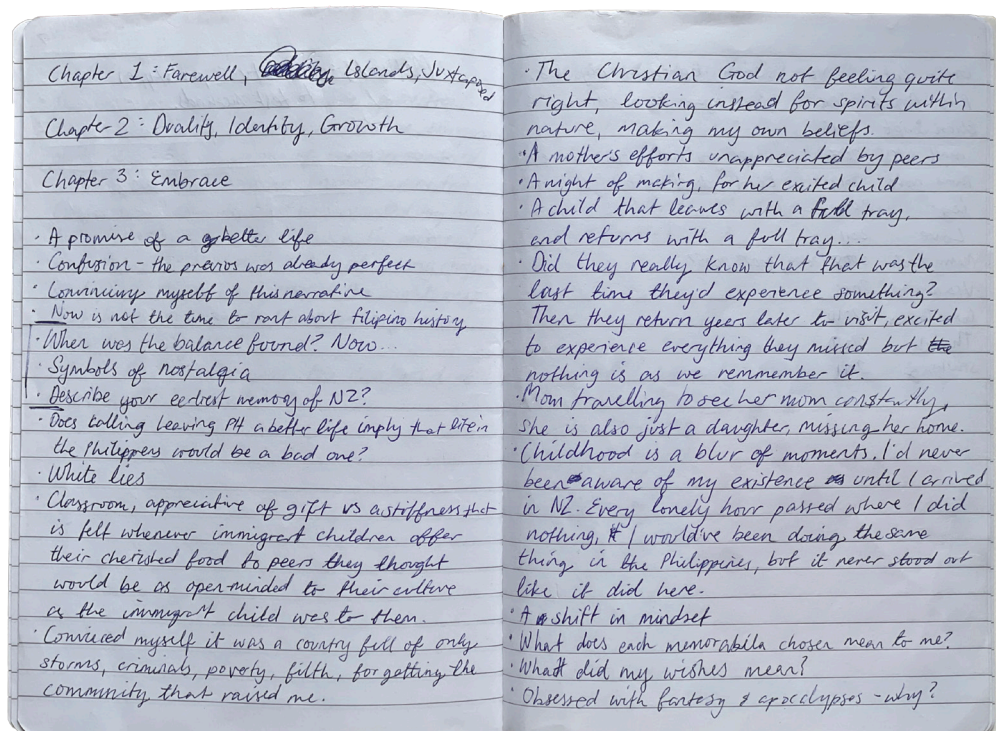 Chapter 1: Farewell, Islands, Juxtaposed
Chapter 2: Duality, Identity, Growth
Chapter 3: Embrace
· A promise of a better life
· Confusion - the previos was already perfect
· Convincing myself of this narrative
· Now is not the time to rant about filipino history
· When was the balance found? Now...
· Symbols of nostalgia
· Describe your earliest memory of NZ?
· Does calling leaving PH a better life imply that life in
the Philippines would be a bad one?
· White lies
· Classroom, appreciative of gift vs a stiffness that
is felt whenever immigrant children offer
their cherished food to peers they thought
would be as open-minded to their culture
as the immigrant child was to them.
· Convinced myself it was a country full of only
storms, criminals, poverty, filth, forgetting the
community that raised me.
· The Christian God not feeling quite
right, looking instead for spirits within
nature, making my own beliefs.
· A mother's efforts unappreciated by peers
· A night of making, for her excited child
· A child that leaves with a full tray,
and returns with a full tray...
· Did they really know that that was the
last time they'd experience something?
Then they return years later to visit, excited
to experience everything they missed but the
nothing is as we remmember it.
· Mom travelling to see her mom constantly,
she is also just a daughter, missing her home.
· Childhood is a blur of moments. I'd never
been aware of my existence until I arrived
in NZ. Every lonely hour passed where I did
nothing, I would've been doing the same
thing in the Philippines, but it never stood out
like it did here.
· A shift in mindset
· What does each memorabila chosen mean to me?
· What did my wishes mean?
· Obsessed with fantasy & apocalypses - why?